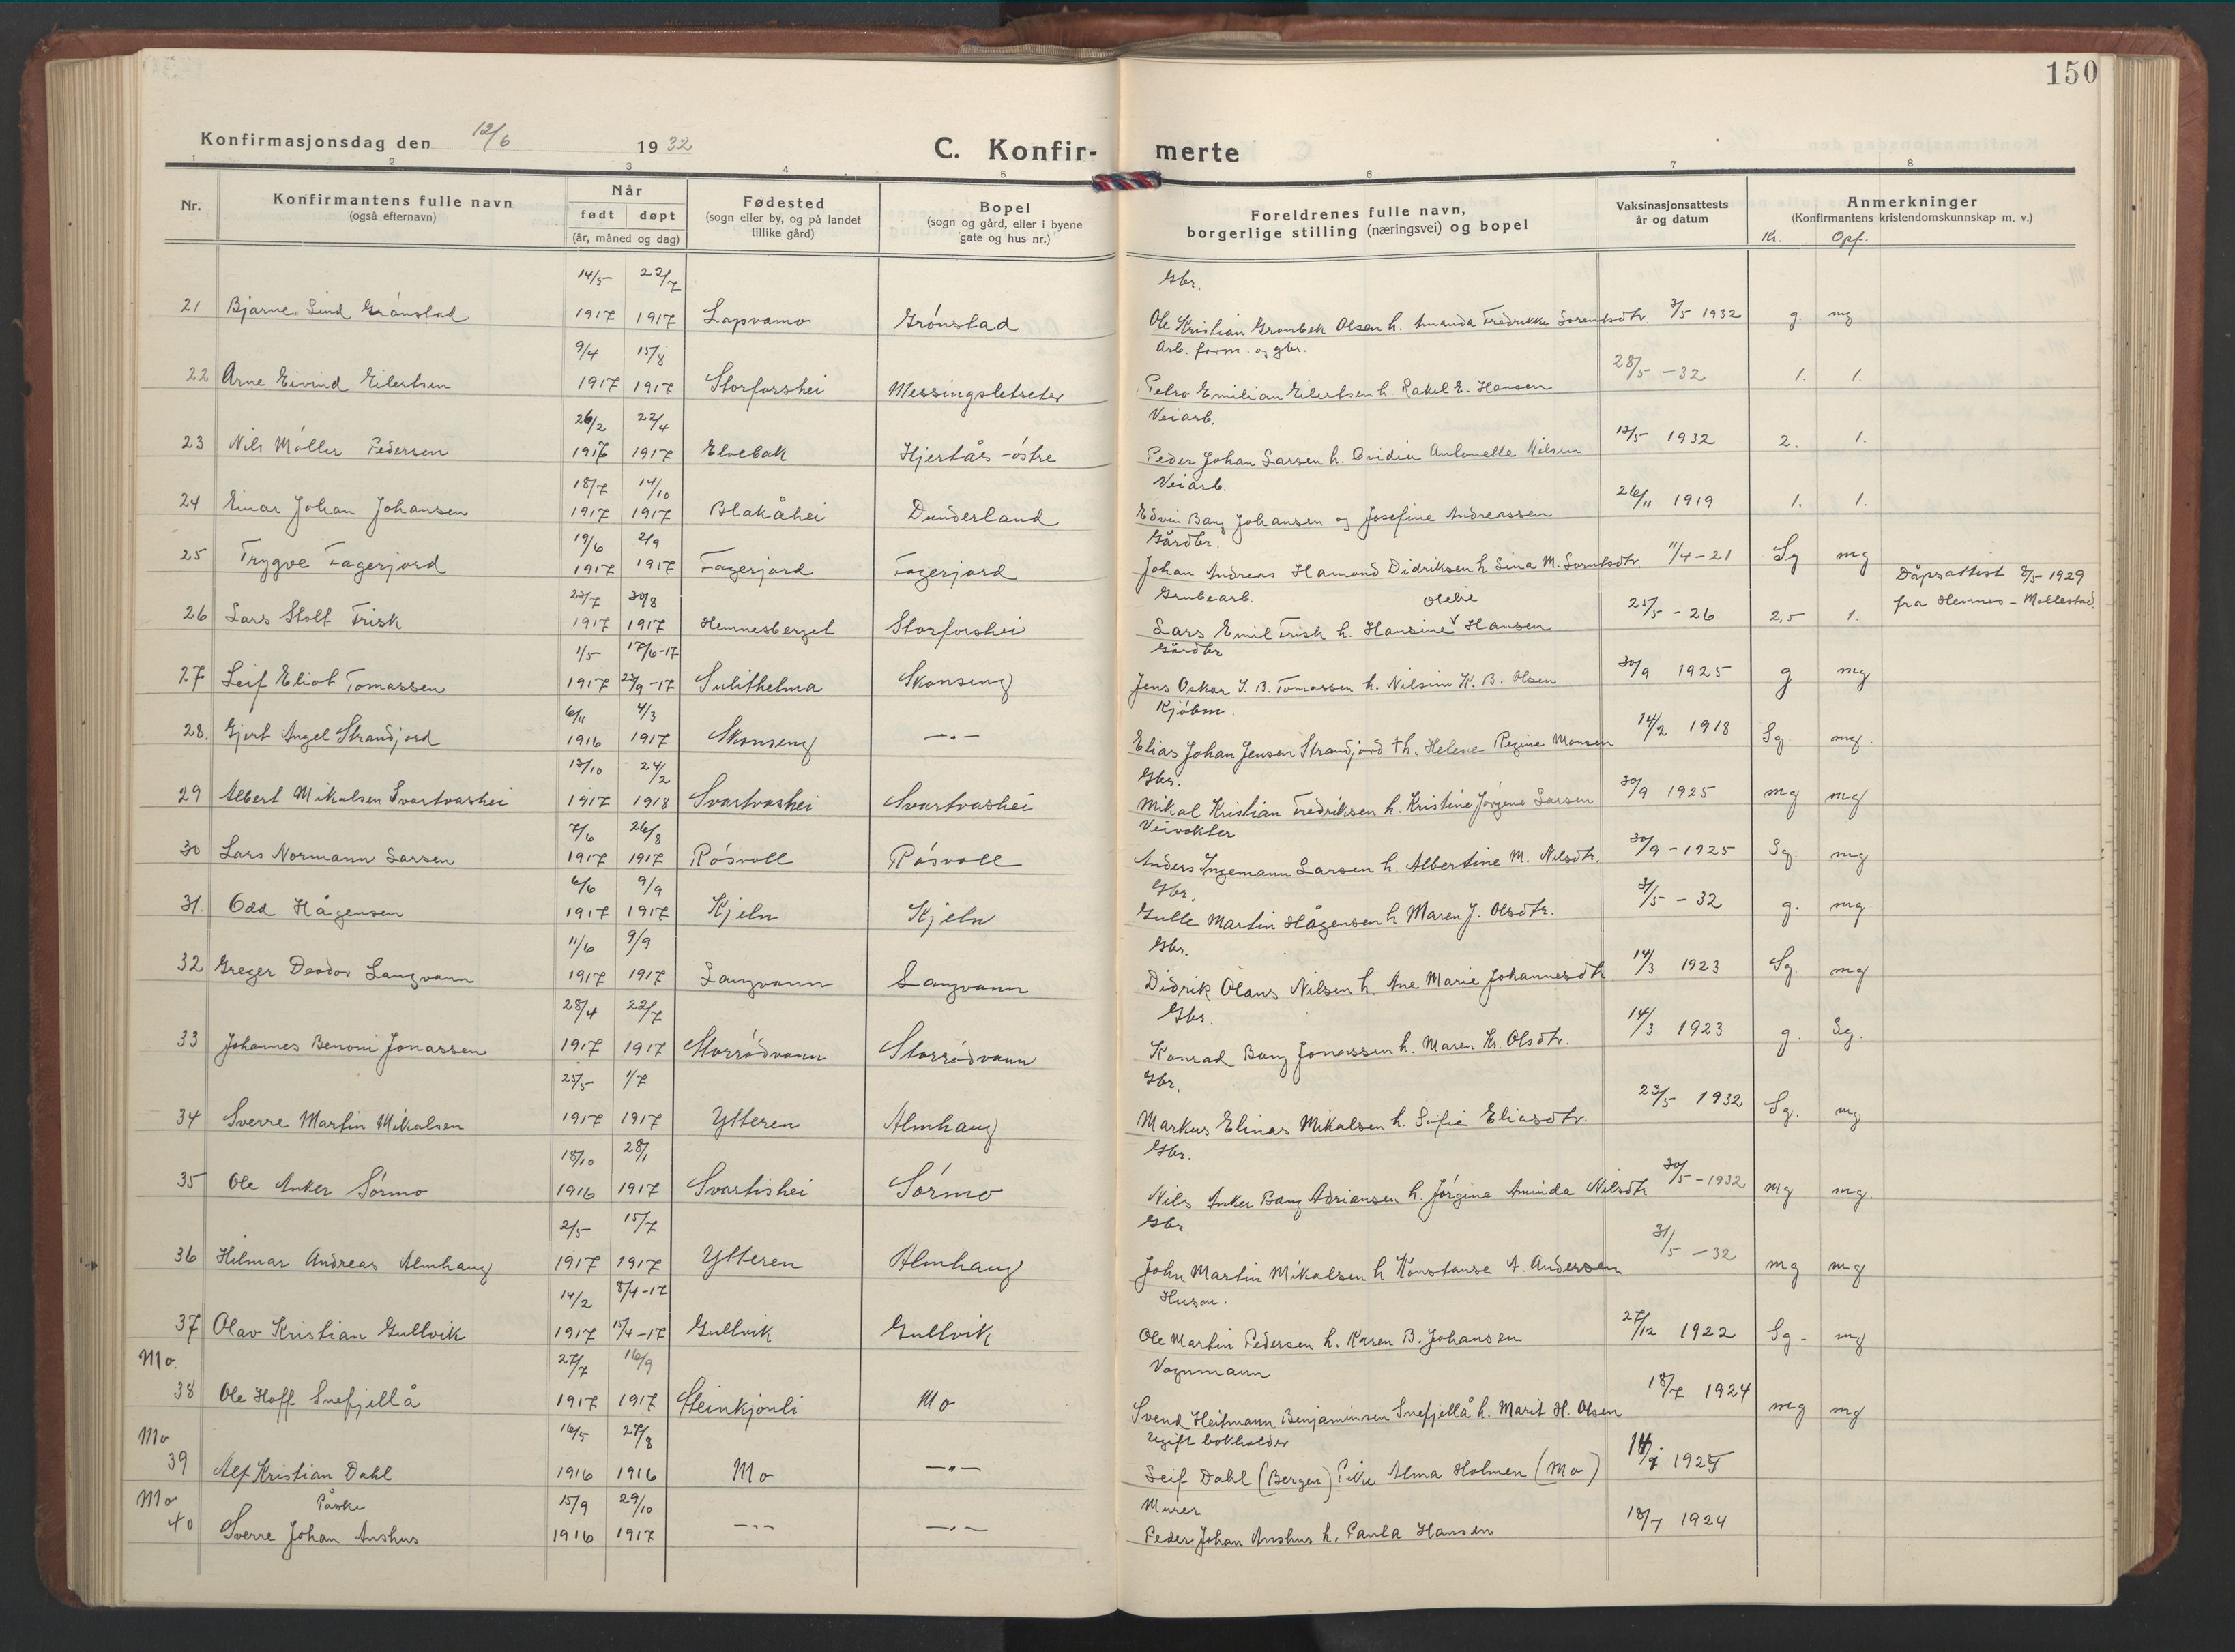 150
Konfirmasjonsdag den 12/6 1932
C. Konfir- merte
1 2 3 4 5 6 7 8
Nr. Konfirmantens fulle navn (også efternavn) Når født døpt (år, måned og dag) Fødested (sogn eller by, og på landet tillike gård) Bopel (sogn og gård, eller i byene gate og hus nr.) Foreldrenes fulle navn, borgerlige stilling (næringsvei) og bopel Vaksinasjonsattests år og datum Anmerkninger (Konfirmantens kristendomskunnskap m. v.)
Kr. Opf.
14/5 22/7 Gbr.
21 Bjarne Lind Grønstad 1917 1917 Lapvamo Grønstad Ole Kristian Grønbek Olsen h. Amanda Fredrikke Sorentsdtr. 3/5 1932 g. mg
9/4 15/8 Arb. form. og gbr.
22 Arne Eivind Eilertsen 1917 1917 Storforshei Messingsletseter Petro Emilian Eilertsen h. Rakel E. Hansen 28/5 -32 1. 1.
26/2 22/4 Veiarb.
23 Nils Møller Pedersen 1917 1917 Elvebak Hjertås-østre Peder Johan Larsen h. Ovidia Antonette Nilsen 13/5 1932 2. 1.
18/7 14/10 Veiarb.
24 Einar Johan Johansen 1917 1917 Blakåhei Dunderland Edvin Bang Johansen og Josefine Andreassen 26/11 1919 1. 1.
19/6 2/9 Gårdbr.
25 Trygve Fagerjord 1917 1917 Fagerjord Fagerjord Johan Andreas Hamond Didriksen h Lina M. Sorntsdtr. 11/4-21 Sg mg
23/7 30/8 Grubearb. Otelie Dåpsattest 8/5-1929
26 Lars Stolt Frisk 1917 1917 Hemnesberget Storforshei Lars Emil Frisk h. Hansine Hansen 25/5 - 26 2,5 1. fra Hemnes - Mollestad.
1/5 17/6-17 Gårdbr
27 Leif Eliot Tomassen 1917 23/9-17 Sulithelma Skonseng Jens Oskar I. B. Tomassen h. Nilsine K. B. Olsen 30/9 1925 g mg
6/11 4/3 Kjøbm.
28. Gjert Angel Strandjord 1916 1917 Skonseng -"- Elias Johan Jensen Strandjord † h. Helene Regine Monsen 14/2 1918 Sg. mg.
13/10 24/2 Gbr.
29 Albert Mikalsen Svartvashei 1917 1918 Svartvashei Svartvashei Mikal Kristian Fredriksen h. Kristine Jørgine Larsen 30/9 1925 mg mg
7/6 26/8 Veivokter
30 Lars Normann Larsen 1917 1917 Røsvoll Røsvoll Anders Ingemann Larsen h. Albertine M. Nilsdtr. 30/9-1925 Sg. mg
6/6 9/9 Gbr.
31. Odd Hågensen 1917 1917 Kjeln Kjeln Gulle Martin Hågensen h Maren J. Olsdtr. 31/5 - 32 g. mg
11/6 9/9 Gbr.
32 Greger Deodor Langvann 1917 1917 Langvann Langvann Didrik Olaus Nilsen h. Ane Marie Johannesdtr. 14/3 1923 Sg. mg
28/4 22/7 Gbr.
33 Johannes Benoni Jonassen 1917 1917 Storrødvann Storrødvann Konrad Bang Jonassen h. Maren Kr. Olsdtr. 14/3 1923 g. Sg.
25/5 1/7 Gbr.
34 Sverre Martin Mikalsen 1917 1917 Ytteren Almhaug Markus Elinas Mikalsen h. Sofie Eliasdtr. 23/5 1932 Sg. mg
18/10 28/1 Gbr.
35 Ole Anker Sørmo 1916 1917 Svartishei Sørmo Nils Anker Bang Adriansen h. Jørgine Aminda Nilsdtr 30/5-1932 mg mg
2/5 15/7 Gbr.
36 Hilmar Andreas Almhaug 1917 1917 Ytteren Almhaug John Martin Mikalsen h Konstanse A. Andersen 31/5 -32 mg mg
14/2 8/4-17 Husm.
37 Olav Kristian Gullvik 1917 15/4-17 Gullvik Gullvik Ole Martin Pedersen h. Karen B. Johansen 27/12 1922 Sg- mg
Mo. 27/7 16/9 Vognmann
38 Ole Hoff Snefjellå 1917 1917 Steinkjønli Mo Svend Heitmann Benjaminsen Snefjellå h. Marit H. Olsen 18/7 1924 mg mg
Mo 16/5 27/8 Ugift bokholder
39 Alf Kristian Dahl 1916 1916 Mo -"- Leif Dahl (Bergen) Pike Alma Holmen (Mo)
Mo Påske 15/9 29/10 Murer
40 Sverre Johan Anshus 1916 1917 -"- -"- Peder Johan Anshus h. Paula Hansen 18/7 1924